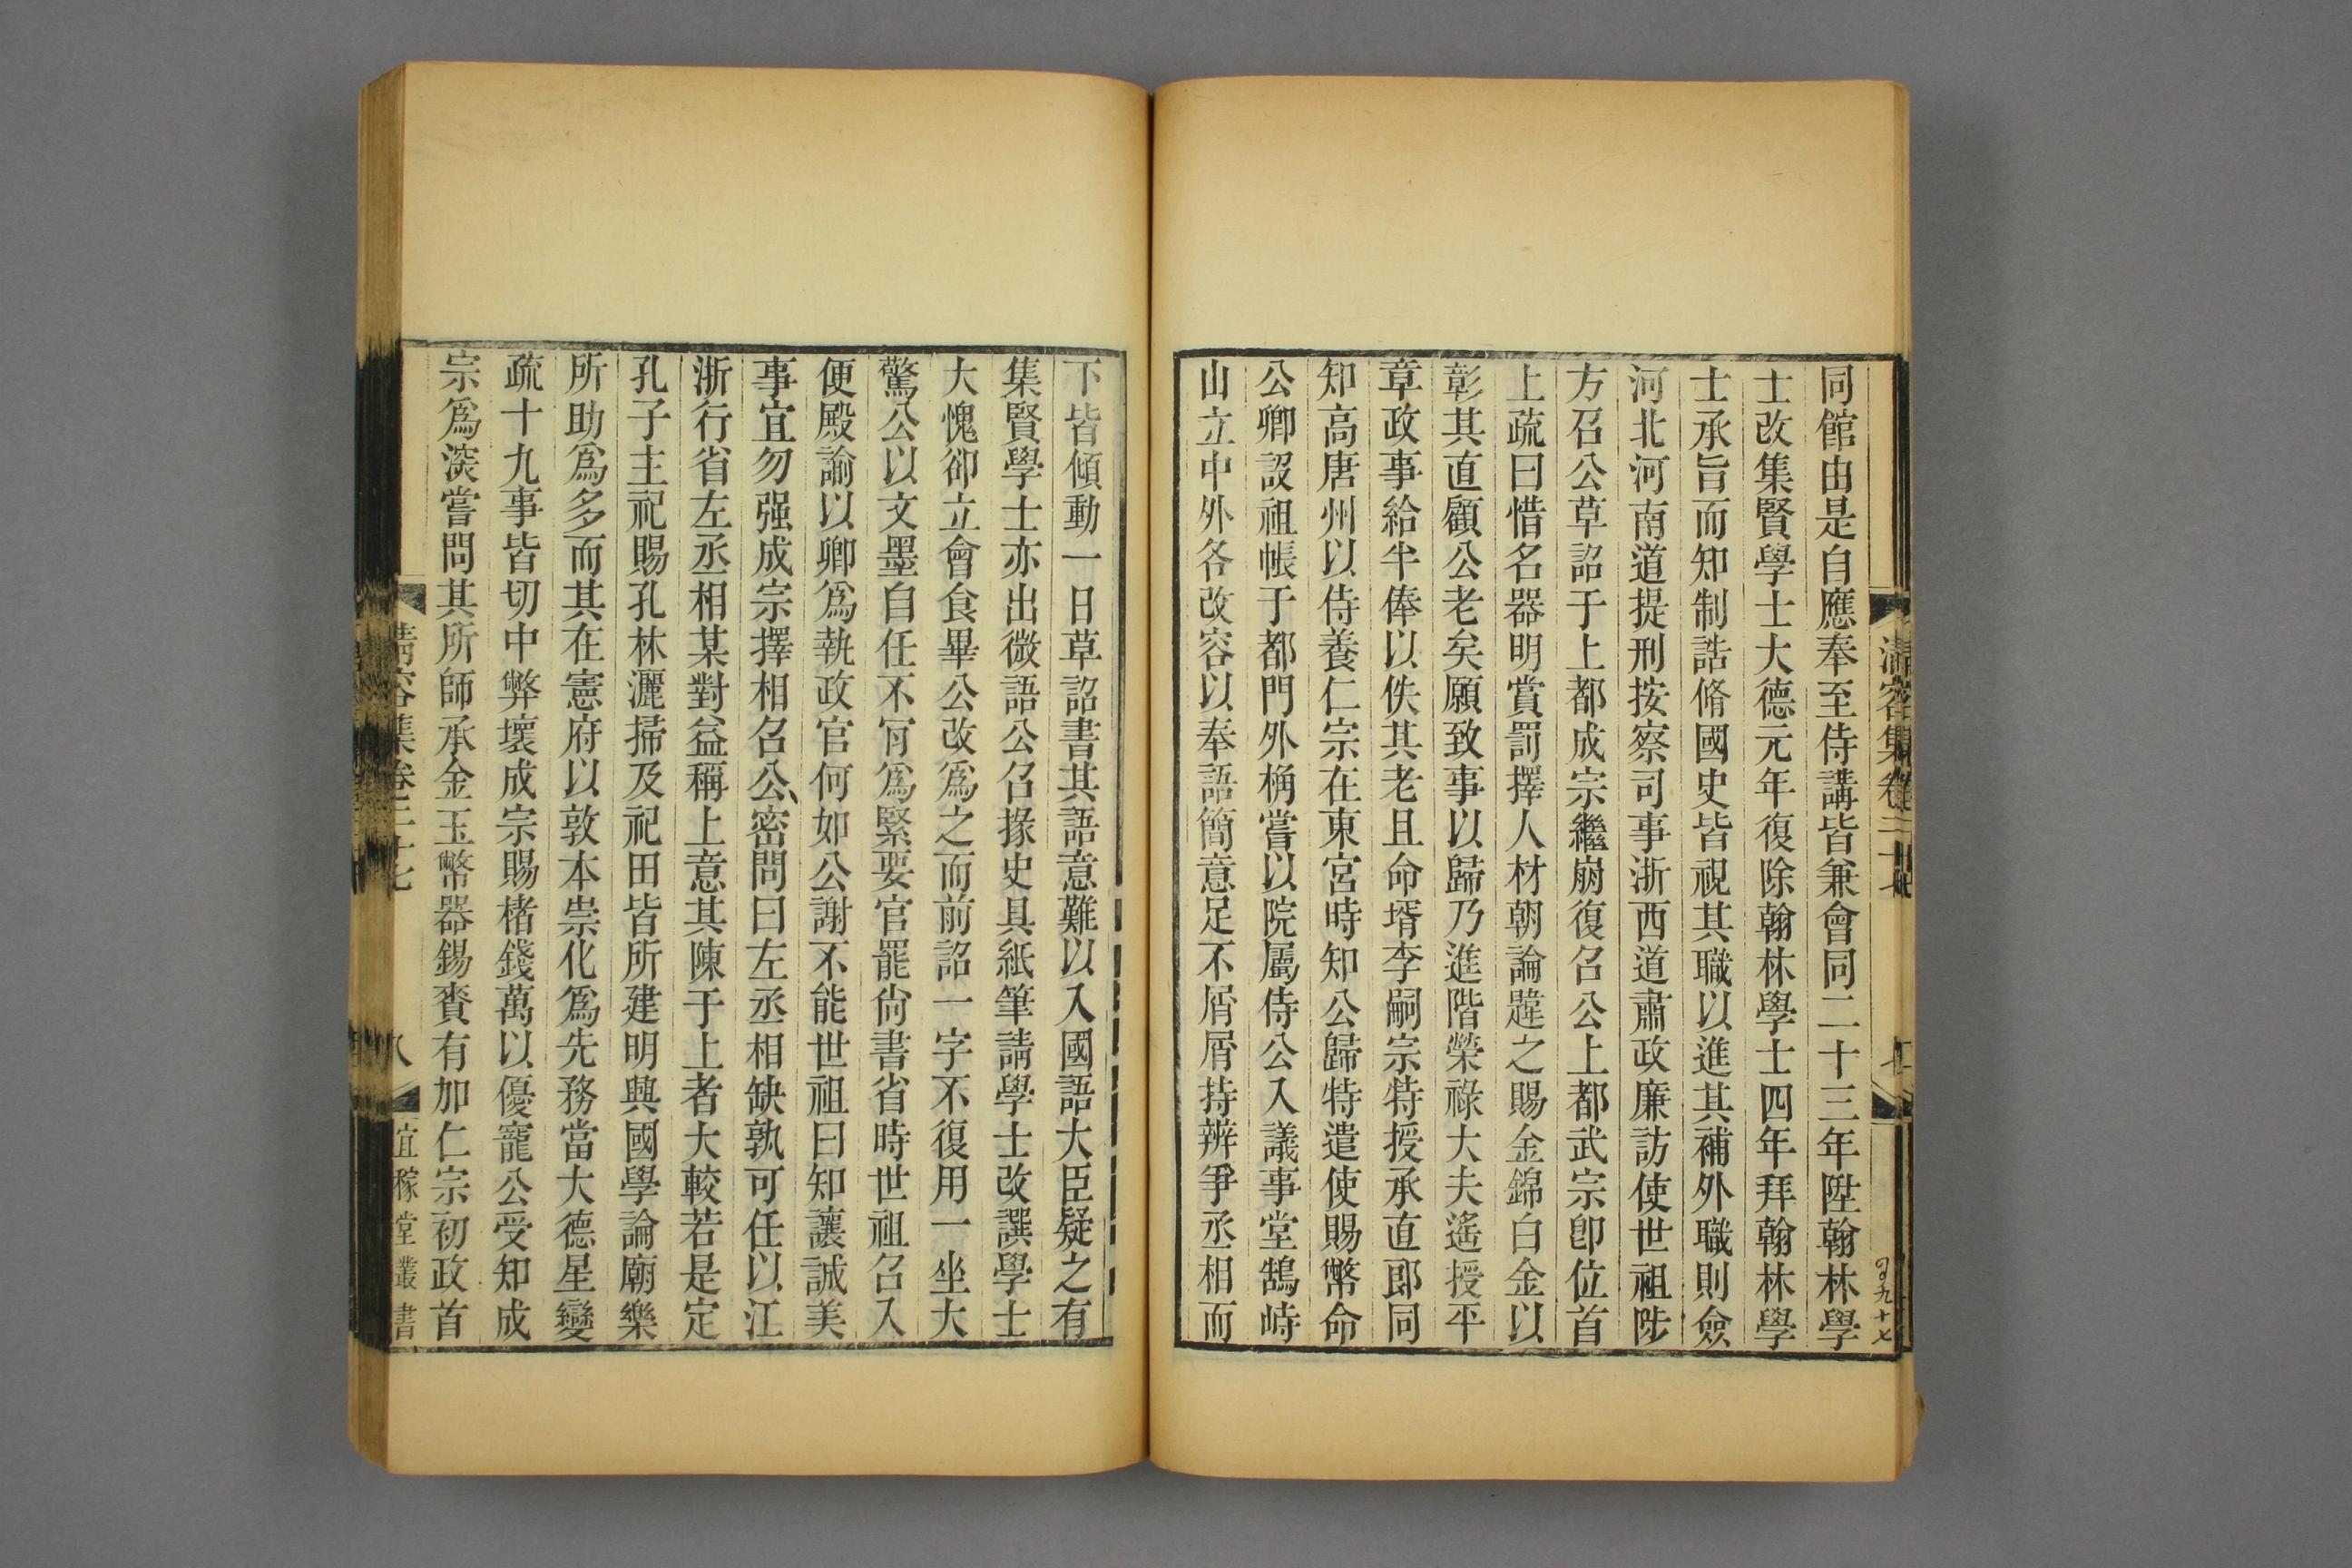 同館由是自應奉至侍講皆兼會同二十三年陞翰林學
士改集賢學士大德元年復除翰林學士四年拜翰林學
士承旨而知制誥脩國史皆視其職以進其補外職則僉
河北河南道提刑按察司事浙西道肅政廉訪使世祖陟
方召公草詔于上都成宗繼崩復召公上都武宗卽位首
上疏曰惜名器明賞罰擇人材朝論韙之賜金錦白金以
彰其直顧公老矣願致事以歸乃進階榮祿大夫遙授平
章政事給半俸以佚其老且命壻李嗣宗特授承直郎同
知高唐州以侍養仁宗在東宮時知公歸特遣使賜幣命
公卿設祖帳于都門外桷嘗以院屬侍公入議事堂鵠峙
山立中外各改容以奉語簡意足不屑屑持辨爭丞相而
下皆傾動一日草詔書其語意難以入國語大臣疑之有
集賢學士亦出微語公召掾史具紙筆請學士改譔學士
大愧卻立會食畢公改爲之而前詔一字不復用一坐大
驚公以文墨自任不肎爲緊要官罷尙書省時世祖召入
便殿諭以卿爲執政官何如公謝不能世祖曰知讓誠美
事宜勿强成宗擇相召公密問曰左丞相缺孰可任以江
浙行省左丞相某對益稱上意其陳于上者大較若是定
孔子主祀賜孔林灑掃及祀田皆所建明興國學論廟樂
所助爲多而其在憲府以敦本崇化爲先務當大德星變
疏十九事皆切中弊壞成宗賜楮錢萬以優寵公受知成
宗爲深嘗問其所師承金玉幣器錫賚有加仁宗初政首
清容集卷三十七
八
宜稼堂叢書